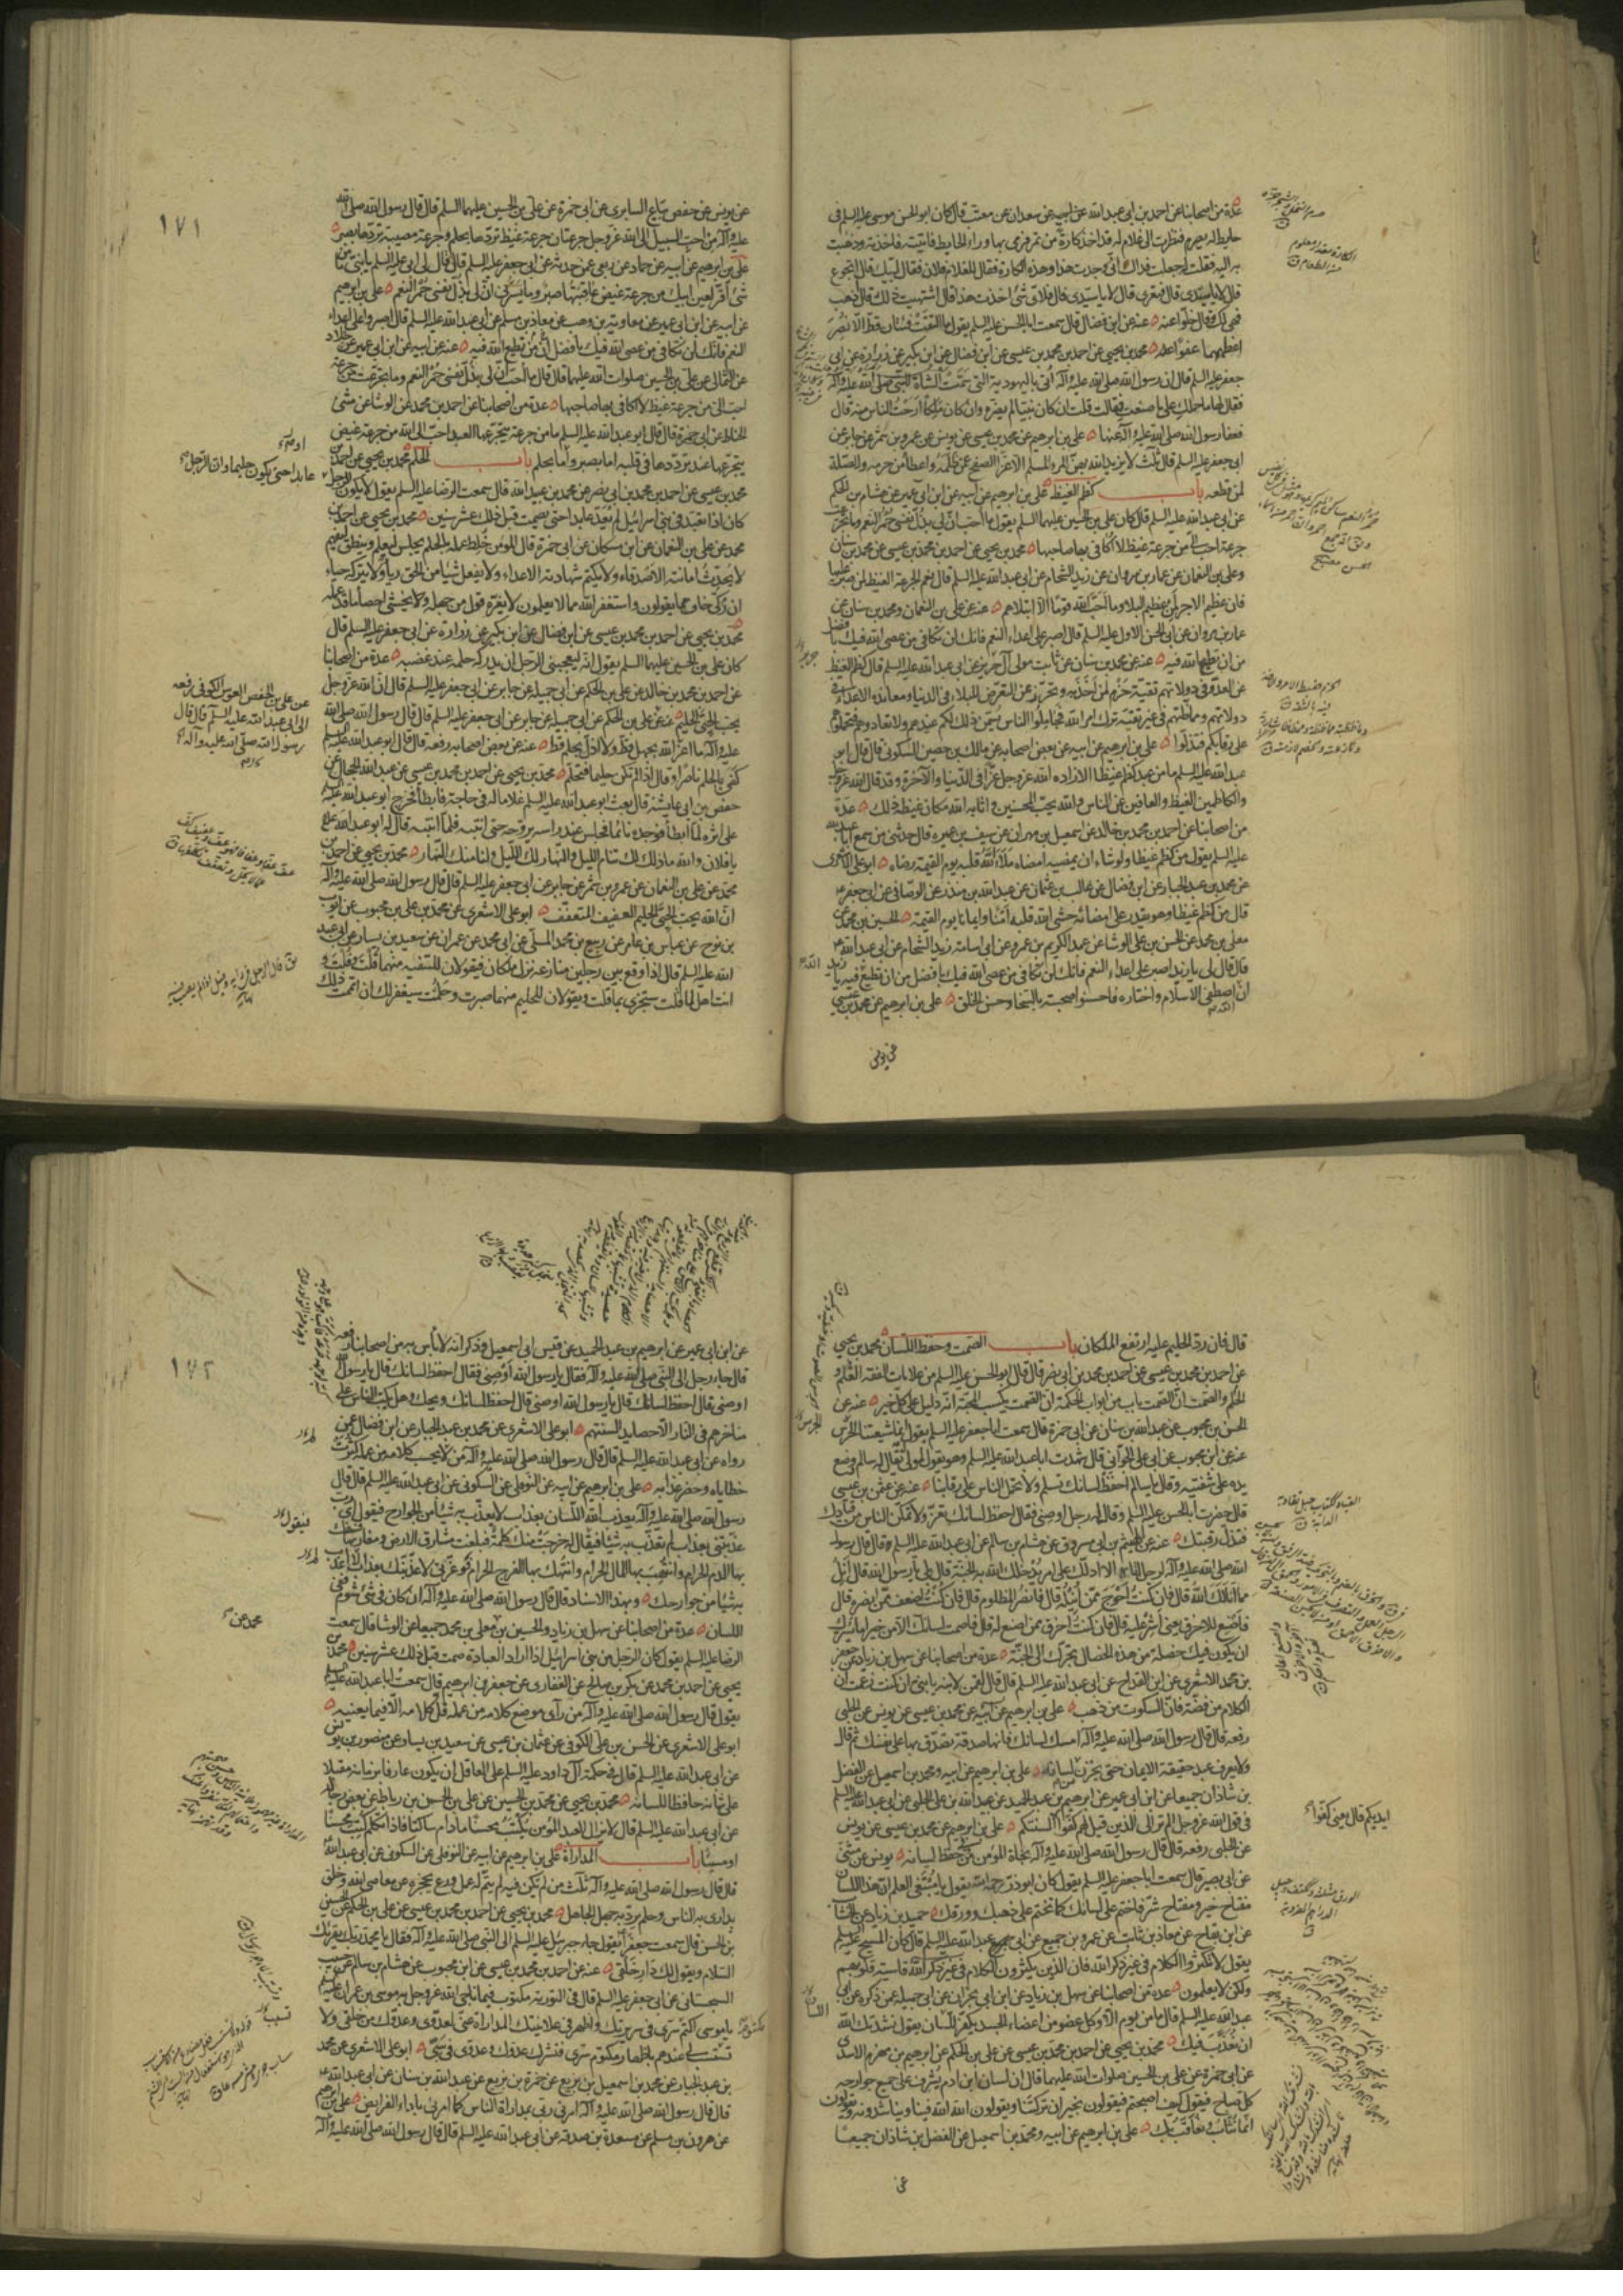 عدة من اصحابنا عن احمد بن ابى عبد الله عن ابيه عن سعدان عن معتب قال كان ابو الحسن موسى عليه السلم فى
حايط له يصرم فنظرت الى غلام له قد اخذ كارة من تمر فرمى بها وراء الحايط فاتيته فاخذته وذهبت
به اليه فقلت له جعلت فداك انى وجدت هذا وهذه الكارة فقال للغلام فلان فقال لبيك قال اتجوع
قال لا يا سيدى قال فتعرى قال لا يا سيدى قال فلاى شئ اخذت هذا قال اشتهيت ذلك قال اذهب
فهى لك وقال خلوا عنه عنه عن ابن فضال قال سمعت ابا الحسن عليه السلم يقول ما التقت فئتان قط الا نصر
اعظمهما عفوا محمد بن يحيى عن احمد بن محمد بن عيسى عن ابن فضال عن ابن بكير عن زرارة عن ابى
جعفر عليه السلم قال ان رسول الله صلى الله عليه وآله اتى باليهودية التى سمت الشاة للنبى صلى الله عليه وآله
فقال لها ما حملك على ما صنعت فقالت قلت ان كان نبيا لم يضره وان كان ملكا ارحت الناس منه قال
فعفا رسول الله صلى الله عليه وآله عنها على بن ابرهيم عن محمد بن عيسى عن يونس عن عمرو بن شمر عن جابر عن
ابى جعفر عليه السلم قال ثلث لا يزيد الله بهن المرء المسلم الا عزا الصفح عمن ظلمه واعطاء من حرمه والصلة
لمن قطعه باب كظم الغيظ على بن ابرهيم عن ابيه عن ابن ابى عمير عن هشام بن الحكم
عن ابى عبد الله عليه السلم قال كان على بن الحسين عليهما السلم يقول ما احب ان لى بذل نفسى حمر النعم وما تجرعت
جرعة احب الى من جرعة غيظ لا اكافى بها صاحبها محمد بن يحيى عن احمد بن محمد بن عيسى عن محمد بن سنان
وعلى بن النعمان عن عمار بن مروان عن زيد الشحام عن ابى عبد الله عليه السلم قال نعم الجرعة الغيظ لمن صبر عليها
فان عظيم الاجر لمن عظيم البلاء وما احب الله قوما الا ابتلاهم عنه عن على بن النعمان ومحمد بن سنان عن
عمار بن مروان عن ابى الحسن الاول عليه السلم قال اصبر على اعداء النعم فانك لن تكافى من عصى الله فيك بافضل
من ان تطيع الله فيه عنه عن محمد بن سنان عن ثابت مولى آل حريز عن ابى عبد الله عليه السلم قال كظم الغيظ
عن العدو فى دولاتهم تقية حزم لمن اخذ به وتحرز عن التعرض للبلاء فى الدنيا ومعاندة الاعداء فى
دولاتهم ومماظتهم فى غير تقية ترك امر الله فجاملوا الناس يسمن ذلك لكم عندهم ولا تعادوهم فتحملوهم
على رقابكم فتذلوا على بن ابرهيم عن ابيه عن بعض اصحابه عن مالك بن حصين السكونى قال قال ابو
عبد الله عليه السلم ما من عبد كظم غيظا الا زاده الله عز وجل عزا فى الدنيا والآخرة وقد قال الله عز وجل
والكاظمين الغيظ والعافين عن الناس والله يحب المحسنين واثابه الله مكان غيظه ذلك عدة
من اصحابنا عن احمد بن محمد بن خالد عن اسمعيل بن مهران عن سيف بن عميرة قال حدثنى من سمع ابا عبد الله
عليه السلم يقول من كظم غيظا ولو شاء ان يمضيه امضاه ملا الله قلبه يوم القيمة رضاه ابو على الاشعرى
عن محمد بن عبد الجبار عن ابن فضال عن غالب بن عثمان عن عبد الله بن منذر عن الوصافى عن ابى جعفر
قال من كظم غيظا وهو يقدر على امضائه حشى الله قلبه امنا وايمانا يوم القيمة الحسين بن محمد عن
معلى بن محمد عن الحسن بن على الوشا عن عبد الكريم بن عمرو عن ابى اسامة زيد الشحام عن ابى عبد الله
قال قال لى يا زيد اصبر على اعداء النعم فانك لن تكافى من عصى الله فيك بافضل من ان تطيع فيه يا زيد
ان اصطفى الاسلام واختاره فاحسنوا صحبته بالسخاء وحسن الخلق على بن ابرهيم عن محمد بن عيسى
عن يونس
١٧١
عن يونس عن حفص بياع السابرى عن ابى حمزة عن على بن الحسين عليهما السلم قال قال رسول الله صلى الله
عليه وآله من احب السبيل الى الله عز وجل جرعتان جرعة غيظ تردها بحلم وجرعة مصيبة تردها بصبر
على بن ابرهيم عن ابيه عن حماد عن ربعى عمن حدثه عن ابى جعفر عليه السلم قال قال لى ابى عليه السلم يا بنى ما من
شئ اقر لعين ابيك من جرعة غيض عاقبتها صبر وما يسرنى ان لى بذل نفسى حمر النعم على بن ابرهيم
عن ابيه عن ابن ابى عمير عن معاوية بن وهب عن معاذ بن مسلم عن ابى عبد الله عليه السلم قال اصبروا على اعداء
النعم فانك لن تكافى من عصى الله فيك بافضل من ان تطيع الله فيه عنه عن ابيه عن ابن ابى عمير عن خلاد
عن الثمالى عن على بن الحسين صلوات الله عليهما قال قال ما احب ان لى بذل نفسى حمر النعم وما تجرعت من جرعة
احب الى من جرعة غيظ لا اكافى بها صاحبها عدة من اصحابنا عن احمد بن محمد عن الوشا عن مثنى
الحناط عن ابى حمزة قال قال ابو عبد الله عليه السلم ما من جرعة يتجرعها العبد احب الى الله من جرعة غيض
يتجرعها عند ترددها فى قلبه اما بصبر واما بحلم باب الحلم محمد بن يحيى عن احمد بن
محمد بن عيسى عن احمد بن محمد بن ابى نصر عن محمد بن عبيد الله قال سمعت الرضا عليه السلم يقول لا يكون الرجل
عابدا حتى يكون حليما وان الرجل
كان اذا تعبد فى بنى اسرائيل لم يعد عابدا حتى يصمت قبل ذلك عشر سنين محمد بن يحيى عن احمد بن
محمد عن على بن النعمان عن ابن مسكان عن ابى حمزة قال المؤمن خلط عمله بالحلم يجلس ليعلم وينطق ليفهم
لا يحدث امانته الاصدقاء ولا يكتم شهادته الاعداء ولا يفعل شيئا من الحق رياء ولا يتركه حياء
ان زكى خاف مما يقولون واستغفر الله مما لا يعلمون لا يغره قول من جهله ولا يخشى احصاء ما قد عمله
محمد بن يحيى عن احمد بن محمد بن عيسى عن ابن فضال عن ابن بكير عن زرارة عن ابى جعفر عليه السلم قال
كان على بن الحسين عليهما السلم يقول انه ليعجبنى الرجل ان يدركه حلمه عند غضبه عدة من اصحابنا
عن احمد بن محمد بن خالد عن على بن الحكم عن ابى جميلة عن جابر عن ابى جعفر عليه السلم قال ان الله عز وجل
يحب الحيى الحليم عنه عن على بن الحكم عن ابى جميلة عن جابر عن ابى جعفر عليه السلم قال قال رسول الله صلى الله
عن على بن حفص العوسى الكوفى رفعه
الى ابى عبد الله عليه السلم قال قال
رسول الله صلى الله عليه وآله
عليه وآله ما اعز الله بجهل قط ولا اذل بحلم قط عنه عن بعض اصحابه رفعه قال قال ابو عبد الله عليه السلم
كفى بالحلم ناصرا وقال اذا لم تكن حليما فتحلم محمد بن يحيى عن احمد بن محمد بن عيسى عن عبد الله الحجال عن
حفص بن ابى عايشة قال بعث ابو عبد الله عليه السلم غلاما له فى حاجة فابطأ فخرج ابو عبد الله عليه
على اثره لما ابطأ فوجده نائما فجلس عند راسه يروحه حتى انتبه فلما انتبه قال له ابو عبد الله
يا فلان والله ما ذلك لك تنام الليل والنهار لك الليل ولنا منك النهار محمد بن يحيى عن احمد بن
محمد عن على بن النعمان عن عمرو بن شمر عن جابر عن ابى جعفر عليه السلم قال قال رسول الله صلى الله عليه وآله
ان الله يحب الحيى الحليم العفيف المتعفف ابو على الاشعرى عن محمد بن على بن محبوب عن ايوب
بن نوح عن عباس بن عامر عن ربيع بن محمد المسلى عن ابى محمد عن عمران عن سعيد بن يسار عن ابى عبد
الله عليه السلم قال اذا وقع بين رجلين منازعة نزل ملكان فيقولان للسفيه منهما قلت وقلت و
انت اهل لما قلت ستجزى بما قلت ويقولان للحليم منهما صبرت وحلمت سيغفر لك ان اتممت ذلك
قال فان رد الحليم عليه ارتفع الملكان باب الصمت وحفظ اللسان محمد بن يحيى
عن احمد بن محمد بن عيسى عن احمد بن محمد بن ابى نصر قال قال ابو الحسن عليه السلم من علامات الفقه العلم و
الحلم والصمت ان الصمت باب من ابواب الحكمة ان الصمت يكسب المحبة انه دليل على كل خير عنه عن
الحسن بن محبوب عن عبد الله بن سنان عن ابى حمزة قال سمعت ابا جعفر عليه السلم يقول انما شيعتنا الخرس
عنه عن ابن محبوب عن ابى على الجوانى قال شهدت ابا عبد الله عليه السلم وهو يقول لمولى له يقال له سالم ووضع
يده على شفتيه وقال يا سالم احفظ لسانك تسلم ولا تحمل الناس على رقابنا عنه عن عثمن بن عيسى
قال حضرت ابا الحسن عليه السلم وقال له رجل اوصنى فقال احفظ لسانك تعز ولا تمكن الناس من قيادك
فتذل رقبتك عنه عن الهيثم بن ابى مسروق عن هشام بن سالم عن ابى عبد الله عليه السلم قال قال رسول
الله صلى الله عليه وآله لرجل اتاه الا ادلك على امر يدخلك الله به الجنة قال بلى يا رسول الله قال انل
مما انالك الله قال فان كنت احوج ممن انيله قال فانصر المظلوم قال فان كنت اضعف ممن انصره قال
فاصنع للاخرق يعنى اشر عليه قال فان كنت اخرق ممن اصنع له قال فاصمت لسانك الا من خير اما يسرك
ان يكون فيك خصلة من هذه الخصال تجرك الى الجنة عدة من اصحابنا عن سهل بن زياد عن جعفر
بن محمد الاشعرى عن ابن القداح عن ابى عبد الله عليه السلم قال قال لقمن لابنه يا بنى ان كنت زعمت ان
الكلام من فضة فان السكوت من ذهب على بن ابرهيم عن ابيه عن محمد بن عيسى عن يونس عن الحلبى
رفعه قال قال رسول الله صلى الله عليه وآله امسك لسانك فانها صدقة تصدق بها على نفسك ثم قال
ولا يعرف عبد حقيقة الايمان حتى يخزن من لسانه على بن ابرهيم عن ابيه ومحمد بن اسمعيل عن الفضل
بن شاذان جميعا عن ابن ابى عمير عن ابرهيم بن عبد الحميد عن عبد الله بن على الحلبى عن ابى عبد الله عليه السلم
فى قول الله عز وجل الم تر الى الذين قيل لهم كفوا السنتكم على بن ابرهيم عن محمد بن عيسى عن يونس
ايديكم قال يعنى كفوا
عن الحلبى رفعه قال قال رسول الله صلى الله عليه وآله نجاة المؤمن فى حفظ لسانه يونس عن مثنى
عن ابى بصير قال سمعت ابا جعفر عليه السلم يقول كان ابو ذر رحمه الله يقول يا مبتغى العلم ان هذا اللسان
مفتاح خير ومفتاح شر فاختم على لسانك كما تختم على ذهبك وورقك حميد بن زياد عن الخشاب
عن ابن بقاح عن معاذ بن ثابت عن عمرو بن جميع عن ابى عبد الله عليه السلم قال كان المسيح عليه السلم
يقول لا تكثروا الكلام فى غير ذكر الله فان الذين يكثرون الكلام فى غير ذكر الله قاسية قلوبهم
ولكن لا يعلمون عدة من اصحابنا عن سهل بن زياد عن ابن ابى نجران عن ابى جميلة عمن ذكره عن ابى
عبد الله عليه السلم قال ما من يوم الا وكل عضو من اعضاء الجسد يكفر اللسان يقول نشدتك الله
ان نعذب فيك محمد بن يحيى عن احمد بن محمد بن عيسى عن على بن الحكم عن ابرهيم بن مهزم الاسدى
عن ابى حمزة عن على بن الحسين صلوات الله عليهما قال ان لسان ابن ادم يشرف على جميع جوارحه
كل صباح فيقول كيف اصبحتم فيقولون بخير ان تركتنا ويقولون الله الله فينا ويناشدونه ويقولون
انما نثاب ونعاقب بك على بن ابرهيم عن ابيه ومحمد بن اسمعيل عن الفضل بن شاذان جميعا
عن
١٧٢
عن ابن ابى عمير عن ابرهيم بن عبد الحميد عن قيس ابى اسمعيل وذكر انه لا باس به من اصحابنا رفعه
قال جاء رجل الى النبى صلى الله عليه وآله فقال يا رسول الله اوصنى فقال احفظ لسانك قال يا رسول الله
اوصنى قال احفظ لسانك قال يا رسول الله اوصنى قال احفظ لسانك ويحك وهل يكب الناس على
مناخرهم فى النار الا حصايد السنتهم ابو على الاشعرى عن محمد بن عبد الجبار عن ابن فضال عمن
رواه عن ابى عبد الله عليه السلم قال قال رسول الله صلى الله عليه وآله من لا يحسب كلامه من عمله كثرت
خطاياه وحضر عذابه على بن ابرهيم عن ابيه عن النوفلى عن السكونى عن ابى عبد الله عليه السلم قال قال
رسول الله صلى الله عليه وآله يعذب الله اللسان بعذاب لا يعذب به شيئا من الجوارح فيقول اى رب
عذبتنى بعذاب لم تعذب به شيئا فيقال له خرجت منك كلمة فبلغت مشارق الارض ومغاربها فسفك
بها الدم الحرام وانتهب بها المال الحرام وانتهك بها الفرج الحرام وعزتى لاعذبنك بعذاب لا اعذب
به شيئا من جوارحك وبهذا الاسناد قال قال رسول الله صلى الله عليه وآله ان كان فى شئ شوم ففى
اللسان عدة من اصحابنا عن سهل بن زياد والحسين بن معلى بن محمد جميعا عن الوشا قال سمعت
محمد عن
الرضا عليه السلم يقول كان الرجل من بنى اسرائيل اذا اراد العبادة صمت قبل ذلك عشر سنين محمد بن
يحيى عن احمد بن محمد عن بكر بن صالح عن الغفارى عن جعفر بن ابرهيم قال سمعت ابا عبد الله عليه السلم
يقول قال رسول الله صلى الله عليه وآله من رأى موضع كلامه من عمله قل كلامه الا فيما يعنيه
ابو على الاشعرى عن الحسن بن على الكوفى عن عثمان بن عيسى عن سعيد بن يسار عن منصور بن يونس
عن ابى عبد الله عليه السلم قال فى حكمة آل داود عليه السلم على العاقل ان يكون عارفا بزمانه مقبلا
على شانه حافظا للسانه محمد بن يحيى عن محمد بن الحسين عن على بن الحسن بن رباط عن بعض رجاله
عن ابى عبد الله عليه السلم قال لا يزال العبد المؤمن يكتب محسنا ما دام ساكتا فاذا تكلم كتب محسنا
او مسيئا باب المداراة على بن ابرهيم عن ابيه عن النوفلى عن السكونى عن ابى عبد الله
قال قال رسول الله صلى الله عليه وآله ثلث من لم تكن فيه لم يتم له عمل ورع يحجزه عن معاصى الله وخلق
يدارى به الناس وحلم يرد به جهل الجاهل محمد بن يحيى عن احمد بن محمد بن عيسى عن على بن الحكم عن الحسين
بن الحسن قال سمعت جعفرا يقول جاء جبرئيل عليه السلم الى النبى صلى الله عليه وآله فقال يا محمد ربك يقرئك
السلام ويقول لك دار خلقى عنه عن احمد بن محمد بن عيسى عن ابن محبوب عن هشام بن سالم عن حبيب
السجستانى عن ابى جعفر عليه السلم قال فى التورية مكتوب فيما ناجى الله عز وجل به موسى بن عمران عليه السلم
يا موسى اكتم مكتوم سرى فى سريرتك واظهر فى علانيتك المداراة عنى لعدوى وعدوك من خلقى ولا
تستسب لى عندهم باظهار مكتوم سرى فتشرك عدوك وعدوى فى سبى ابو على الاشعرى عن محمد
بن عبد الجبار عن محمد بن اسمعيل بن بزيع عن حمزة بن بزيع عن عبد الله بن سنان عن ابى عبد الله
قال قال رسول الله صلى الله عليه وآله امرنى ربى بمداراة الناس كما امرنى باداء الفرايض على بن ابرهيم
عن هرون بن مسلم عن مسعدة بن صدقة عن ابى عبد الله عليه السلم قال قال رسول الله صلى الله عليه وآله